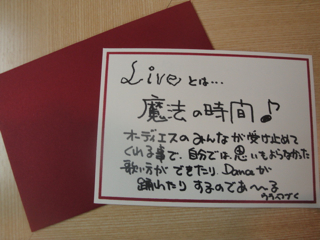 Liveとは…
魔法の時間♪
オーディエスのみんなが受け止めて
くれる事で、自分では、思いもよらなかった
歌い方ができたり、Danceが
踊れたりするのであ〜る